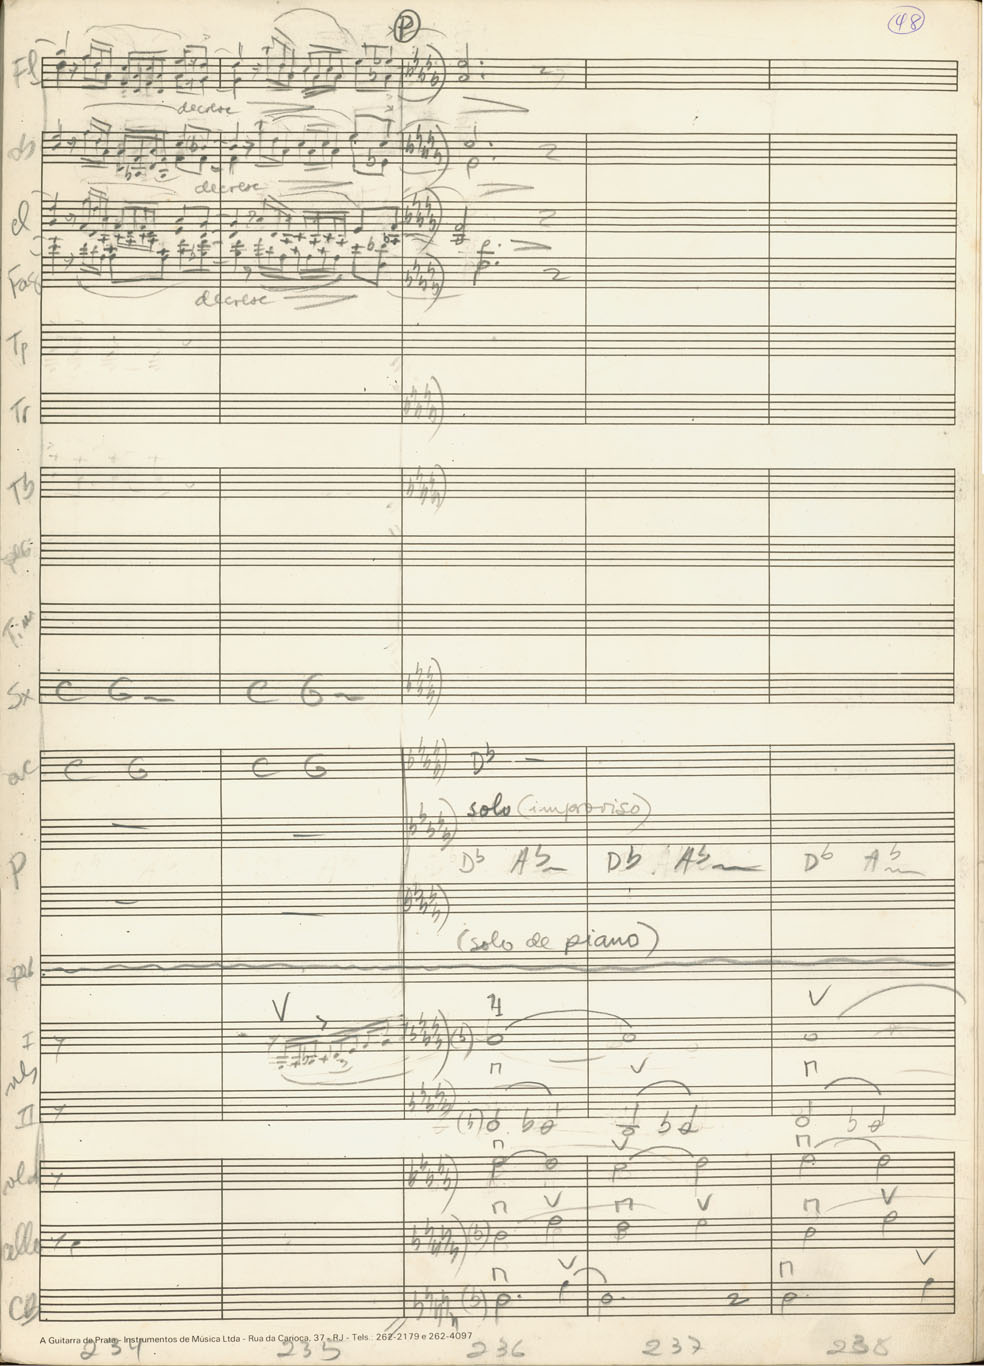 P 48
Fl
decresc
ob
decresc
cl
Fag
decresc
Tp
Tr
Tb
Tim
Sx C G C G
ac C G C G Db -
solo (improviso)
P Db Ab Db Ab Db Ab
(solo de piano)
I
vls
II
viola
cello
CB
A Guitarra de Prata - Instrumentos de Música Ltda - Rua da Carioca, 37 - RJ - Tels.: 262-2179 e 262-4097
234 235 236 237 238